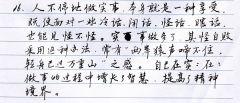 16. 人不停地做实事，本身就是一种享受，
既使面对一些冷话、闲话、怪话、瞎话，
也能见怪不怪。实事做多了，其怪自败
采用这种办法，常有“两岸猿声啼不住，
轻舟已过万重山”之感。自己在实干
做事的过程中增长了智慧，提高了精神
境界。